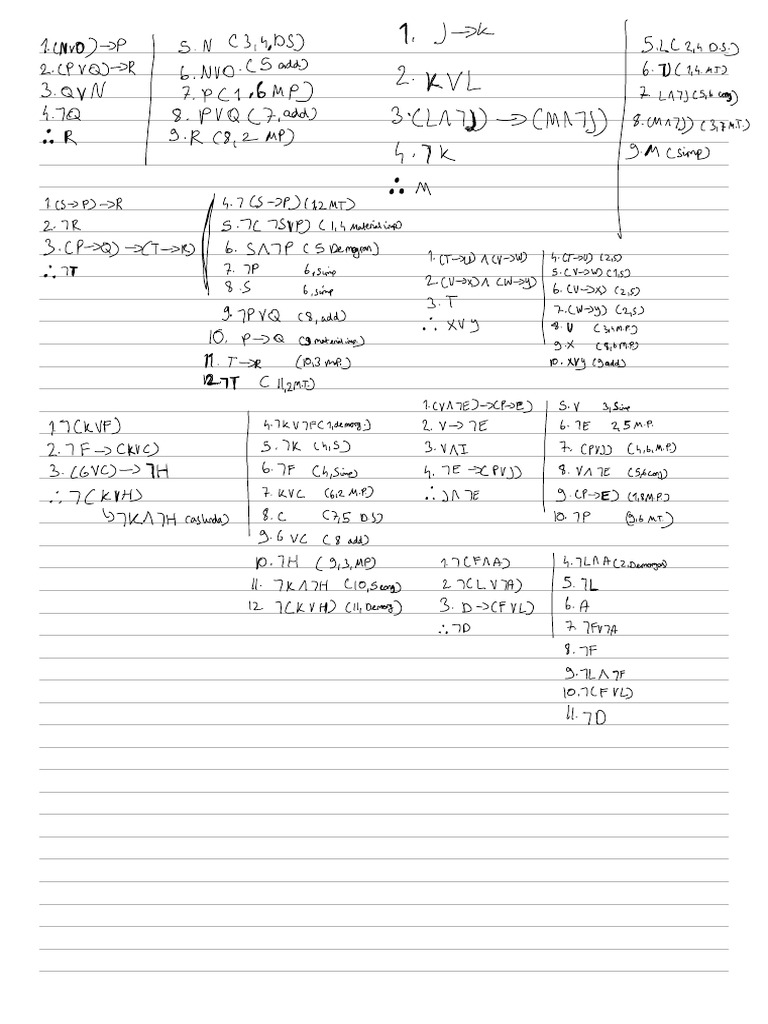 1.(NVO)→P
2.(PVQ)→R
3. QVN
4.¬Q
∴ R
5. N (3,4,DS)
6. NVO.(5 add)
7. P(1,6 MP)
8. PVQ (7, add)
9. R (8,2 MP)
1. J→K
2. KVL
3.(LΛ¬J)→(MΛ¬J)
4.¬K
∴ M
5.L(2,4 D.S.)
7. LΛ¬J(5,6 conj)
8.(MΛ¬J) (3,7 M.T.)
9. M (simp)
1(S→P)→R
2.¬R
3.(P→Q)→(T→R)
∴¬T
4.¬(S→P)(1,2 MT)
5.¬(¬SVP)(1,4 Material imp)
6. SΛ¬P (5 Demorgan)
7. ¬P 6,Simp
8. S 6,simp
9.¬PVQ (8,add)
10. P→Q (9 material imp.)
11. T→R (10,3 M.P.)
12.¬T (11,2 M.T.)
1.(T→U)Λ(V→W)
2.(V→X)Λ(W→y)
3. T
∴ XVy
4.(T→U) (2,S)
5.(V→W)(1,S)
6.(V→X)(2,S)
7.(W→y)(2,S)
8. U (3,4 M.P.)
9. X (8,6 M.P.)
10. XVy (9 add)
1¬(KVF)
2.¬F→(KVC)
3.(GVC)→¬H
∴¬(KVH)
↳¬KΛ¬H
4.¬KV¬F(1,demorg.)
5.¬K (4,S)
6.¬F (4,Simp)
7. KVC (6,2 M.P)
8. C (7,5 DS)
9. G VC (8 add)
10.¬H (9,3,MP)
11. ¬KΛ¬H (10,5 conj)
12. ¬(KVH) (11,Demorg)
1.(VΛ¬E)→(P→E)
2. V→¬E
3. VΛI
4. ¬E→(PVJ)
∴JΛ¬E
5.V 3,Simp
6.¬E 2,5 M.P.
7. (PVJ) (4,6,M.P.)
8. VΛ¬E (5,6 conj)
9.(P→E) (1,8 M.P.)
10. ¬P (9,6 M.T.)
1¬(FΛA)
2¬(LV¬A)
3. D→(FVL)
∴¬D
4.¬LΛA(2,Demorgan)
5.¬L
6. A
7.¬FV¬A
8.¬F
9.¬LΛ¬F
10.¬(FVL)
11.¬D